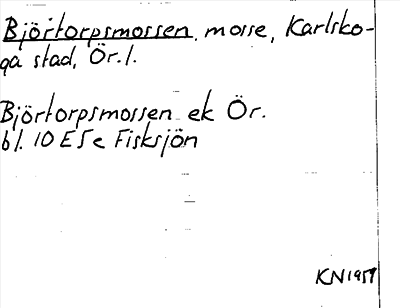 Björtorpsmossen, mosse, Karlsko-
ga stad, Ör. l.
Björtorpsmossen ek Ör.
bl. 10 E 5 e Fisksjön
KN 1959